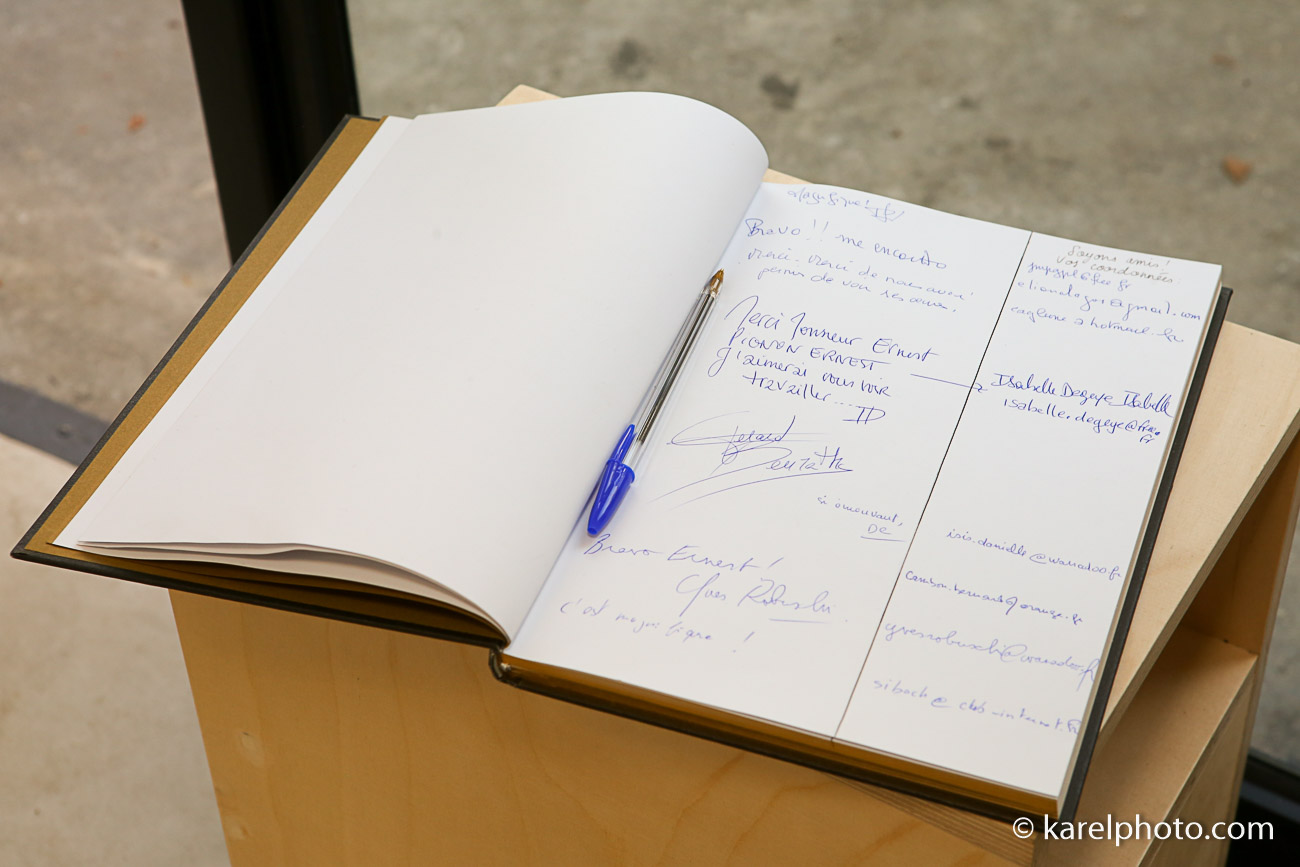 Magnifique!
Bravo !! me encanto
merci. merci de nous avoir
permis de voir ces œuvres,
Merci Monsieur Ernest
PIGNON ERNEST
J'aimerai vous voir
travailler...
ID
Gérard
si émouvant,
DC
Bravo Ernest!
Yves
c'est magnifique !
Soyons amis!
Vos coordonnées:
@gmail.com
hotmail.fr
Isabelle Degeye Isabelle
isabelle.degeye@free.
fr
isis.danielle@wanadoo.fr
@orange.fr
yvesrobuschi@wanadoo.fr
siboch@club-internet.fr
© karelphoto.com